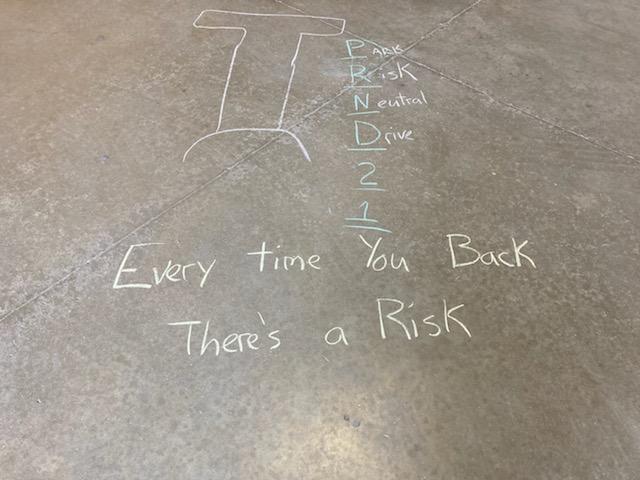 Park
Risk
Neutral
Drive
2
1
Every time You Back
There's a Risk